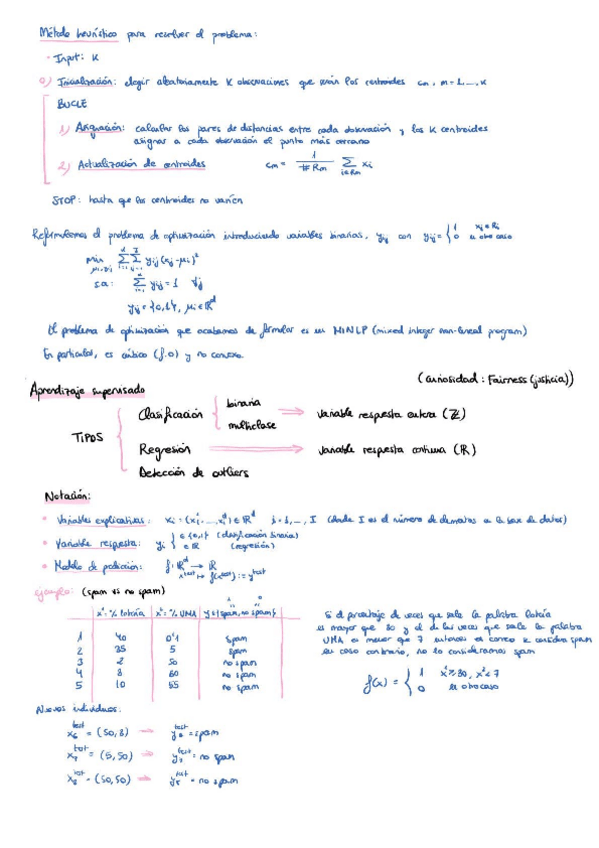 Método heurístico para resolver el problema:
• Input: K
0) Inicialización: elegir aleatoriamente K observaciones que serán los centroides cm, m=1,...,K
BUCLE
1) Asignación: calcular los pares de distancias entre cada observación y los K centroides
asignar a cada observación el punto más cercano
2) Actualización de centroides cm = 1/#Rm Σ i∈Rm xi
STOP: hasta que los centroides no varíen
Reformulemos el problema de optimización introduciendo variables binarias, yij con yij = { 1 xj∈Ri
0 en otro caso
min Σ Σ yij (xj-μi)²
s.a: Σ yij = 1 ∀j
yij = {0,1}, μi ∈ ℝᵈ
El problema de optimización que acabamos de formular es un MINLP (mixed integer non-lineal program)
En particular, es cúbico (f.o) y no convexo.
(curiosidad: Fairness (justicia))
Aprendizaje supervisado
TIPOS
Clasificación { binaria
multiclase
⇒ variable respuesta entera (ℤ)
Regresión ⇒ variable respuesta continua (ℝ)
Detección de outliers
Notación:
• Variables explicativas: xi = (xi¹,...,xiᵈ) ∈ ℝᵈ i=1,...,I (donde I es el número de elementos en la base de datos)
• Variable respuesta: yi { ∈ {0,1} (clasificación binaria)
∈ ℝ (regresión)
• Modelo de predicción: f: ℝᵈ → ℝ
xᵗᵉˢᵗ ↦ f(xᵗᵉˢᵗ) := yᵗᵉˢᵗ
ejemplo: (spam vs no spam)
x¹ = % lotería x² = % UMA y = {spam, no spam}
1 40 0'1 spam
2 35 5 spam
3 2 50 no spam
4 8 60 no spam
5 10 55 no spam
Si el porcentaje de veces que sale la palabra lotería
es mayor que 30 y el de las veces que sale la palabra
UMA es menor que 7 entonces el correo se considera spam
en caso contrario, no lo consideramos spam
f(x) = { 1 x¹≥30, x²<7
0 en otro caso
Nuevos individuos:
x6ᵗᵉˢᵗ = (50,8) → yᵗᵉˢᵗ = spam
x7ᵗᵉˢᵗ = (5,50) → y7ᵗᵉˢᵗ = no spam
x8ᵗᵉˢᵗ = (50,50) → y8ᵗᵉˢᵗ = no spam